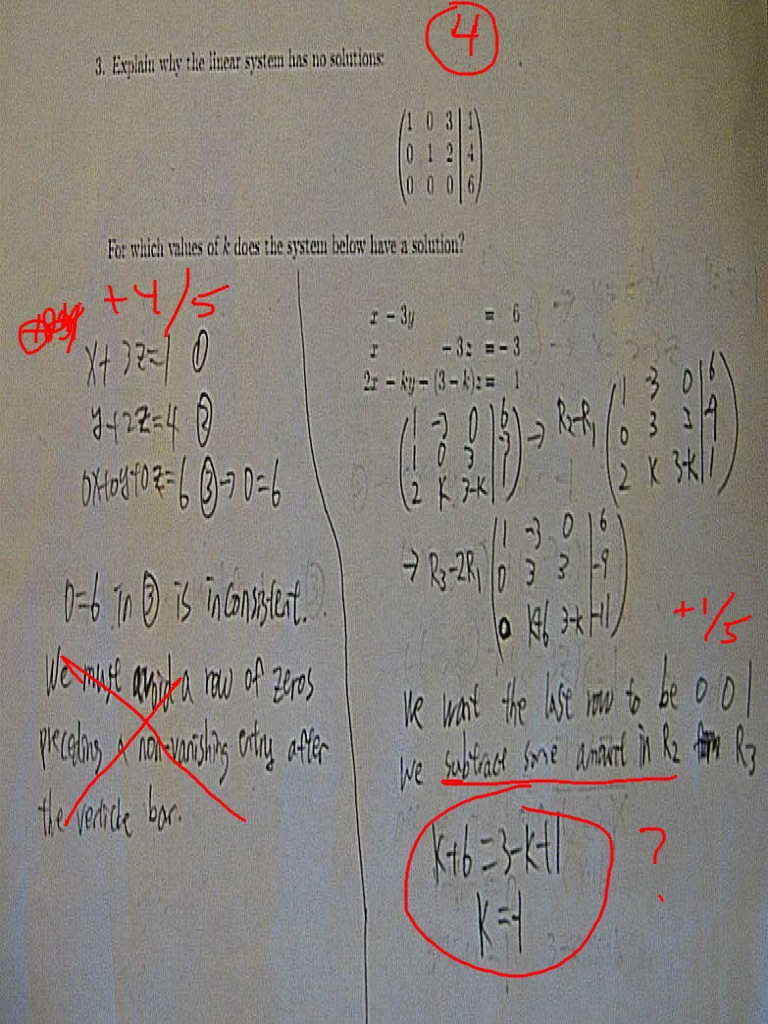 4
3. Explain why the linear system has no solutions:
(1 0 3 | 1)
(0 1 2 | 4)
(0 0 0 | 6)
For which values of k does the system below have a solution?
x - 3y = 6
x - 3z = -3
2x - ky - (3 - k)z = 1
+4/5
x+3z=1 ①
y+2z=4 ②
0x+0y+0z=6 ③→0=6
0=6 in ③ is inconsistent.
We must avoid a row of zeros
preceding a non-vanishing entry after
the verticle bar.
(1 -3 0 | 6)
(1 0 3 | -3)
(2 K 3-K | 1)
→ R2-R1
(1 3 0 | 6)
(0 3 3 | -9)
(2 K 3-K | 1)
→ R3-2R1
(1 -3 0 | 6)
(0 3 3 | -9)
(0 K+6 3-K | -11)
+1/5
We want the last row to be 0 0 1
We subtract some amount in R2 from R3
K+6=3-K+1
?
K=-1